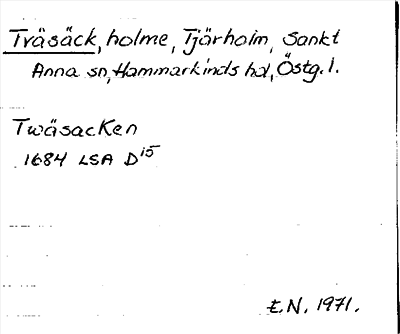 Träsäck, holme, Tjärholm, Sankt
Anna sn, Hammarkinds hd, Östg. l.
Twäsacken
1684 LSA D15
E.N. 1971.